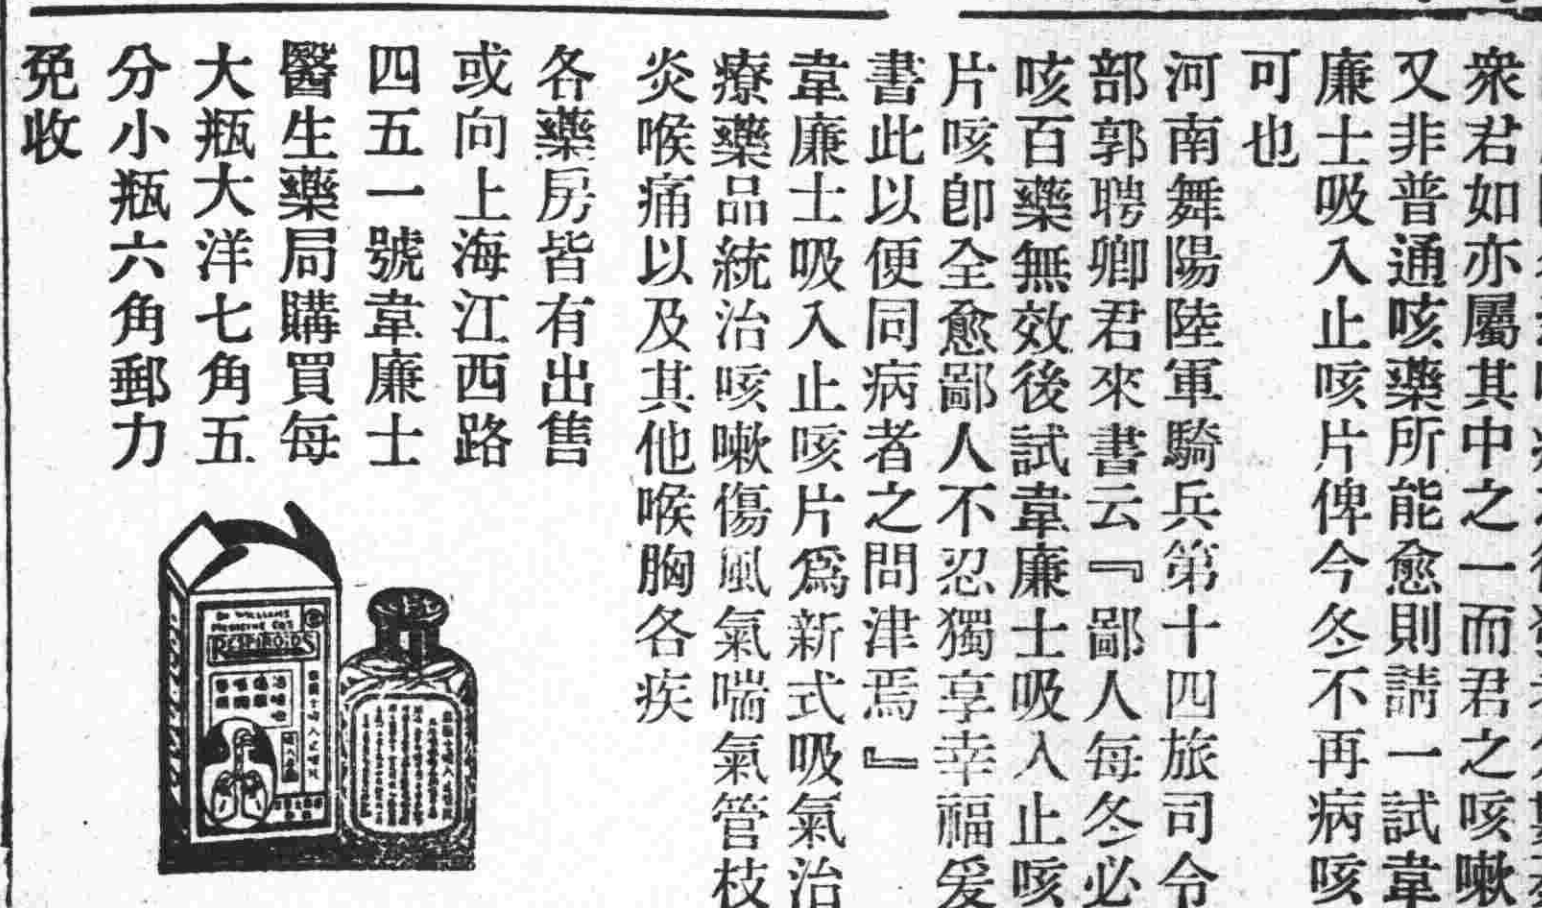 衆君如亦屬其中之一而君之咳嗽
又非普通咳藥所能愈則請一試韋
廉士吸入止咳片俾今冬不再病咳
可也
河南舞陽陸軍騎兵第十四旅司令
部郭聘卿君來書云『鄙人每冬必
咳百藥無效後試韋廉士吸入止咳
片咳卽全愈鄙人不忍獨享幸福爰
書此以便同病者之問津焉』
韋廉士吸入止咳片爲新式吸氣治
療藥品統治咳嗽傷風氣喘氣管枝
炎喉痛以及其他喉胸各疾
各藥房皆有出售
或向上海江西路
四五一號韋廉士
醫生藥局購買每
大瓶大洋七角五
分小瓶六角郵力
免收
DR WILLIAMS
MEDICINE CO'S
RESPIROIDS